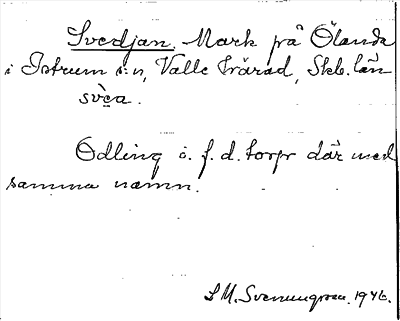 Svedjan. Mark på Ölanda
i Istrum s:n, Valle härad, Skb. län
svèa.
Odling o. f. d. torpr där med
samma namn.
S M. Svenungsson. 1946.